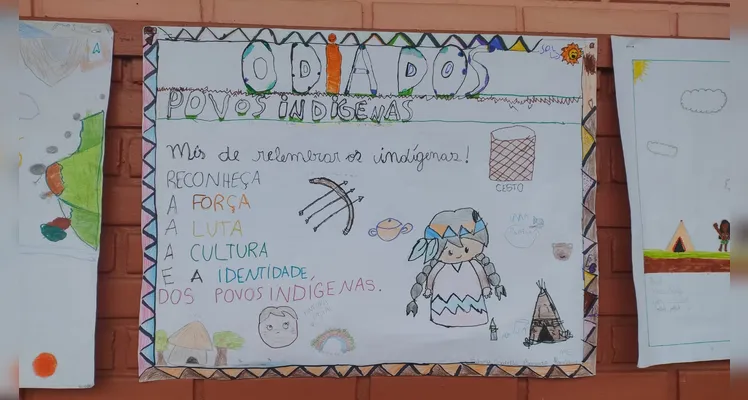 O DIA DOS
POVOS INDÍGENAS
Mês de relemerar os indígenas!
RECONHEÇA
A FORÇA
A LUTA
A CULTURA
E A IDENTIDADE
DOS POVOS INDÍGENAS.
CESTO